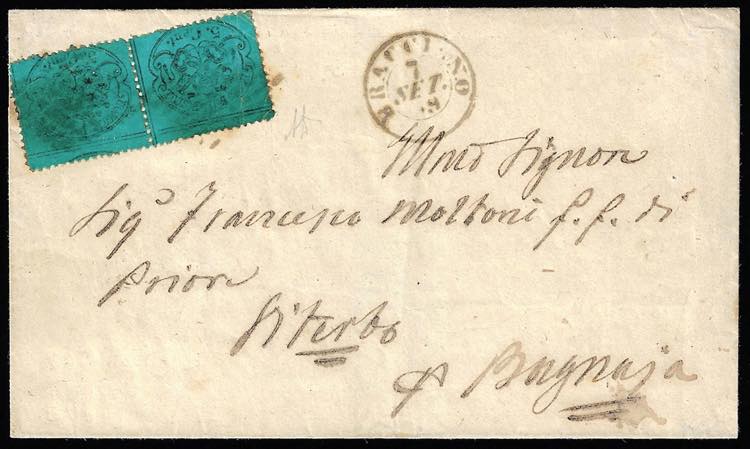 5 Cent.
BRACCIANO
7
SET.
68
Illmo Signore
Sigr Francesco Moltoni f. f. di
Priore
Viterbo
p Bagnaja